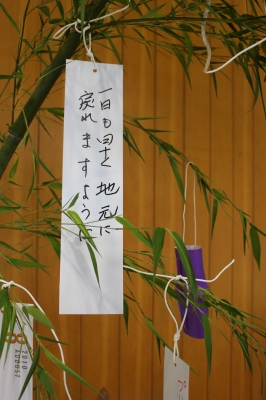 一日も早く地元に
戻れますように
2010